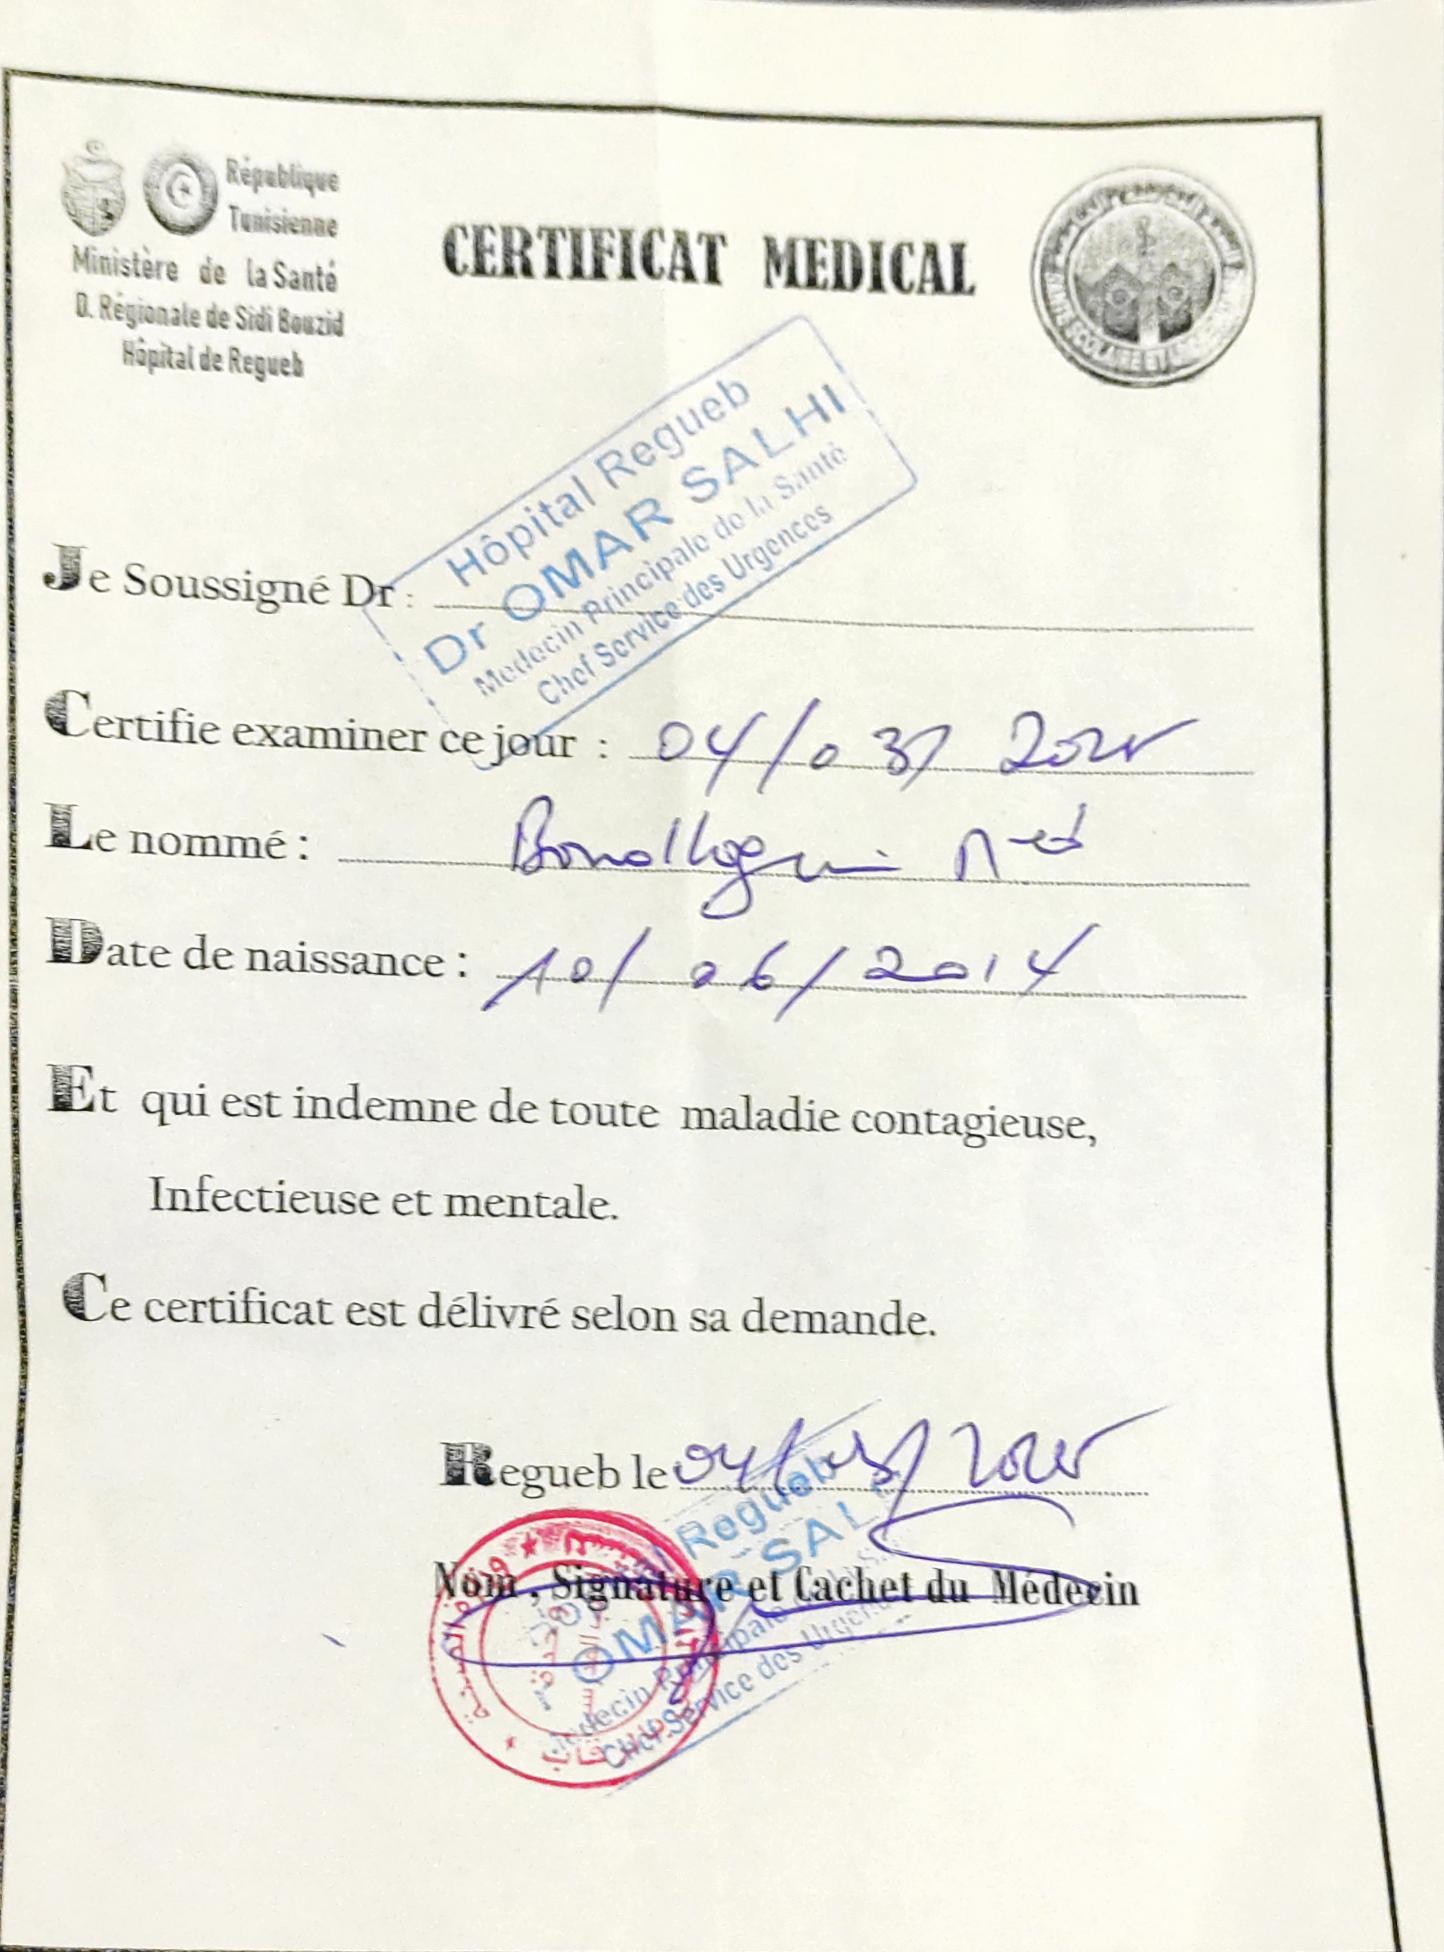 République
Tunisienne
Ministère de la Santé
D. Régionale de Sidi Bouzid
Hôpital de Regueb
CERTIFICAT MEDICAL
SCOLAIRE ET
Hôpital Regueb
Dr OMAR SALHI
Medecin Principale de la Santé
Chef Service des Urgences
Je Soussigné Dr :
Certifie examiner ce jour : 04/03/2025
Le nommé :
Date de naissance : 10/06/2014
Et qui est indemne de toute maladie contagieuse,
Infectieuse et mentale.
Ce certificat est délivré selon sa demande.
Regueb le 04/03/2025
Nom, Signature et Cachet du Médecin
Regueb
OMAR SAL
Medecin Principale
Chef Service des Urgen
وزارة الصحة